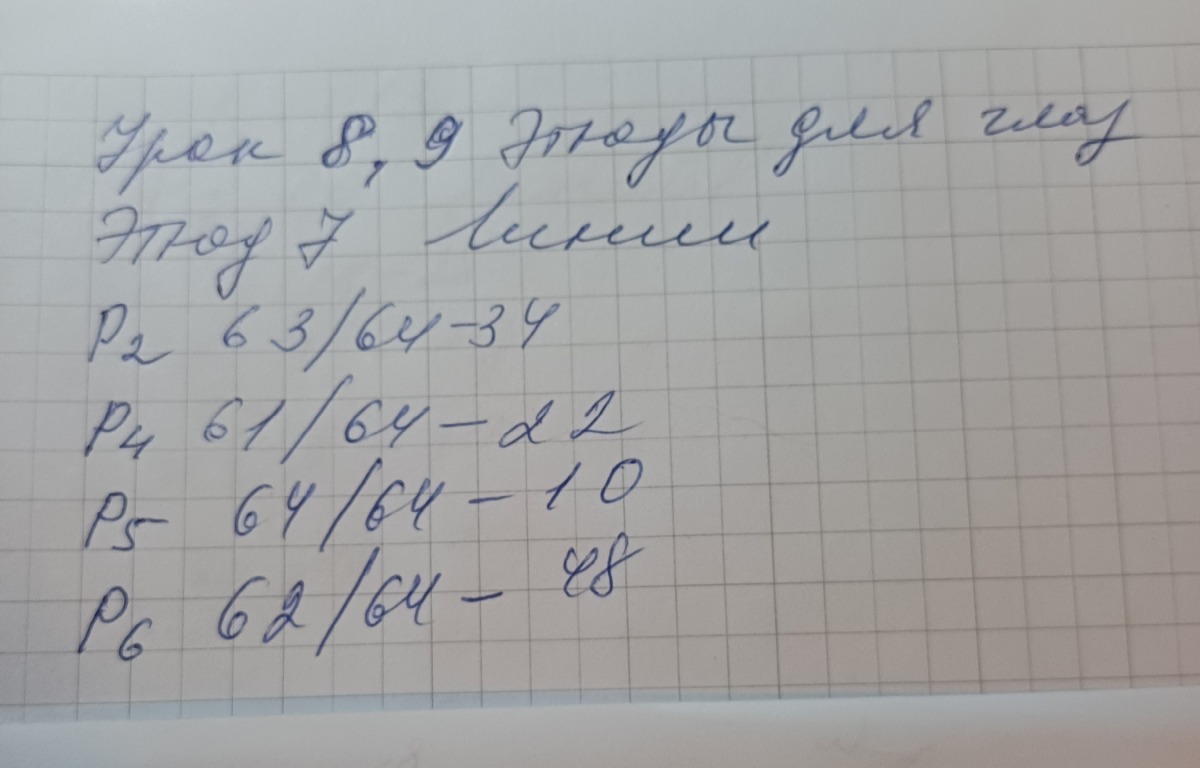 Урок 8, 9 Этюды для глаз
Этюд 7 Линии
P2 63/64-34
P4 61/64-22
P5 64/64-10
P6 62/64-48